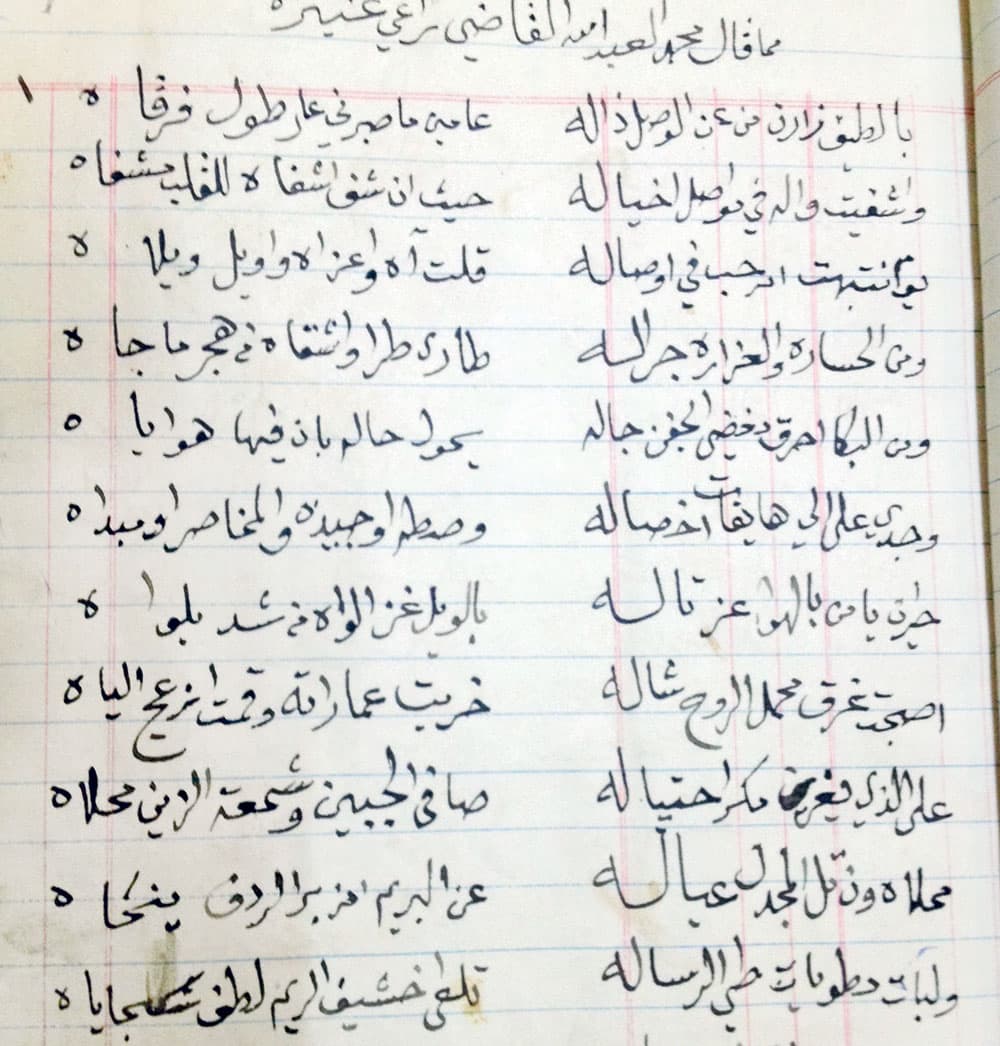 مما قال محمد العبدالله القاضي راعي عنيزة
١
بالطيف زارن من عن الوصل ذاله عامين ما صبرني على طول فرقا ه
واشفيت واله في تواصل اخياله حيث ان شف اشفاه للقلب مشفا ه
يوم انتبهت ارحب في اوصاله قلت آه واعزاه واويل ويلا ه
ومن الحساره والعزاره جراله طاري طرا واشقاه من هجر ما جا ه
ومن البكا احرق دغضي الجفن جاله يحول حاله بان فيها هوايا ه
وجدي على الي هايفات اخصاله وصطه اوجيده والمخاصر او مبدا ه
حرق يا من بالهوا عز تاله بالويل عز الواه من شد بلوا ه
اصبحت غرق محمل الروح شاله خربت عماراته وقمت ازعج اليا ه
على الذي مكر احتياله صافي الجبين وشمعة الزين محلا ه
محلاه ون قل المجدل عياله عن البريم الردف ينحا ه
ولبات مطويات طي الرساله تلقى خشيف الريم لطف سجايا ه